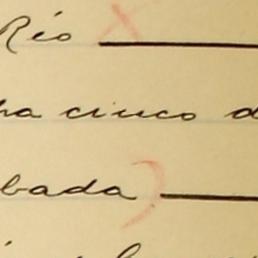 Rio
ha cinco d
bada